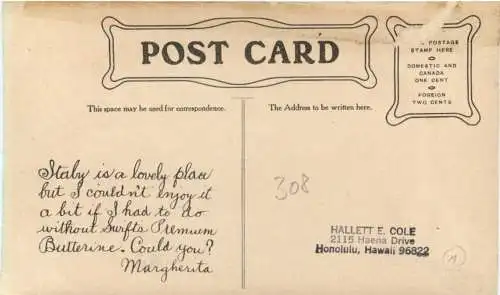 POST CARD
POSTAGE
STAMP HERE
DOMESTIC AND
CANADA
ONE CENT
FOREIGN
TWO CENTS
This space may be used for correspondence.
The Address to be written here.
Italy is a lovely place
but I couldn't enjoy it
a bit if I had to do
without Swifts Premium
Butterine. Could you?
Margherita
308
HALLETT E. COLE
2115 Haena Drive
Honolulu, Hawaii 96822